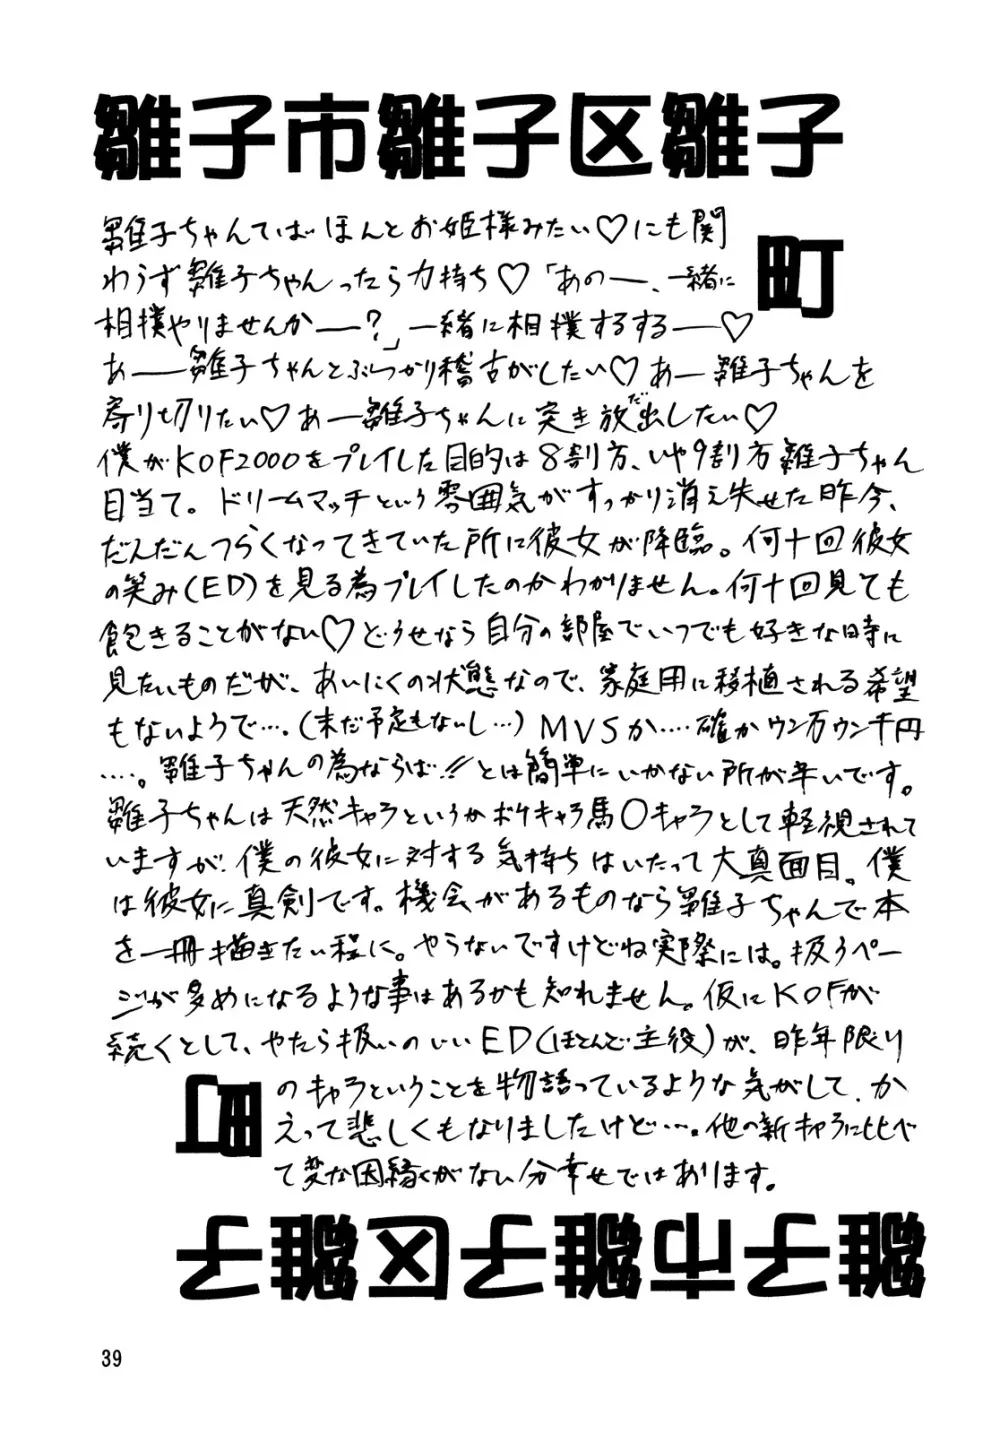 雛子市雛子区雛子
町
雛子ちゃんてばほんとお姫様みたい♡にも関
わらず雛子ちゃんったら力持ち♡「あのー、一緒に
相撲やりませんかー?」一緒に相撲するするー♡
あー雛子ちゃんとぶつかり稽古がしたい♡あー雛子ちゃんを
寄り切りたい♡あー雛子ちゃんに突き放だ出したい♡
僕がKOF2000をプレイした目的は8割方、いや9割方雛子ちゃん
目当て。ドリームマッチという雰囲気がすっかり消え失せた昨今、
だんだんつらくなってきていた所に彼女が降臨。何十回彼女
の笑み(ED)を見る為プレイしたのかわかりません。何十回見ても
飽きることがない♡どうせなら自分の部屋でいつでも好きな時に
見たいものだが、あいにくの状態なので、家庭用に移植される希望
もないようで…。(未だ予定もないし…)MVSか…。確かウン万ウン千円
…。雛子ちゃんの為ならば!!とは簡単にいかない所が辛いです。
雛子ちゃんは天然キャラというかボケキャラ馬〇キャラとして軽視されて
いますが、僕の彼女に対する気持ちはいたって大真面目。僕
は彼女に真剣です。機会があるものなら雛子ちゃんで本
を一冊描きたい程に。やらないですけどね実際には。扱うペー
ジが多めになるような事はあるかも知れません。仮にKOFが
続くとして、やたら扱いのいいED(ほとんど主役)が、昨年限り
のキャラということを物語っているような気がして、か
えって悲しくもなりましたけど…。他の新キャラに比べ
て変な因縁がない分幸せではあります。
町
雛子市雛子区雛子
39